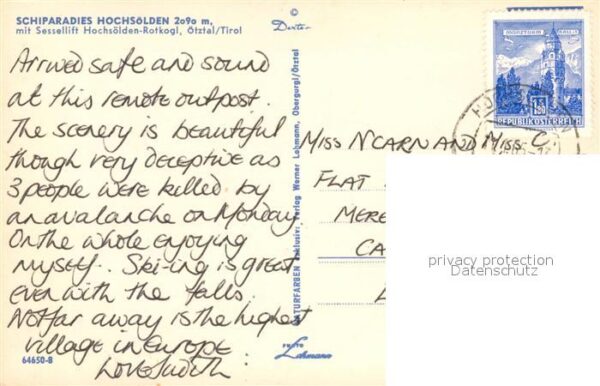 SCHIPARADIES HOCHSÖLDEN 2090 m,
mit Sessellift Hochsölden-Rotkogl, Ötztal/Tirol
Arrived safe and sound
at this remote outpost.
The scenery is beautiful
though very deceptive as
3 people were killed by
an avalanche on Monday
On the whole enjoying
myself.. Ski-ing is great
even with the falls.
Not far away is the highest
village in Europe
Love Judith
64650-B
©
Dexter
NATURFARBEN Exklusiv: Verlag Werner Lohmann, Obergurgl/Ötztal
FOTO
Lohmann
MÜNZTURM HALL I. T.
1.50
REPUBLIK ÖSTERREICH
MISS N'CARN AND MISS C
FLAT
MERE
CA
privacy protection
Datenschutz